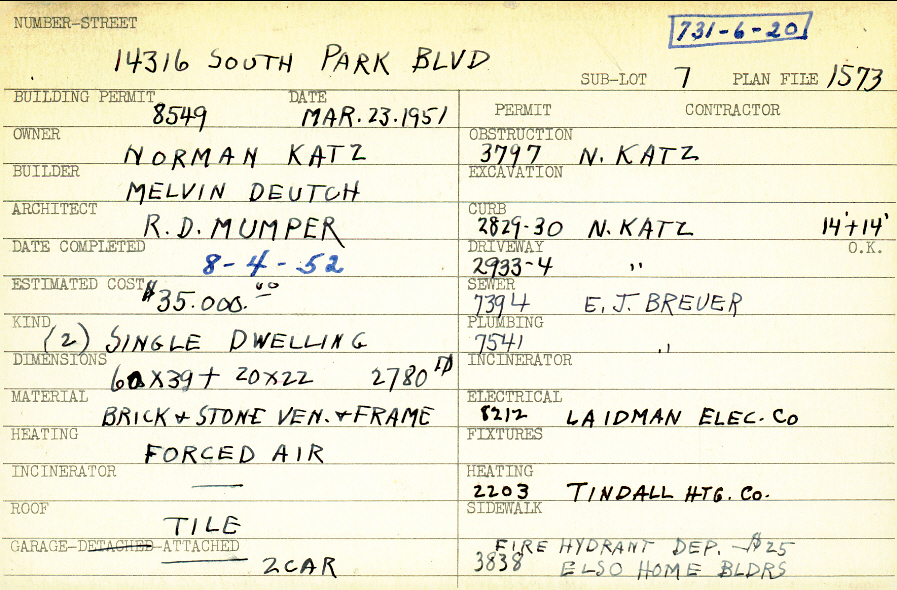 NUMBER-STREET
731-6-20
14316 SOUTH PARK BLVD
SUB-LOT 7 PLAN FILE 1573
BUILDING PERMIT DATE
8549 MAR. 23. 1951
OWNER
NORMAN KATZ
BUILDER
MELVIN DEUTCH
ARCHITECT
R. D. MUMPER
DATE COMPLETED
8-4-52
ESTIMATED COST
$35.000.00
KIND
(2) SINGLE DWELLING
DIMENSIONS
60X39+ 20X22 2780
MATERIAL
BRICK + STONE VEN. + FRAME
HEATING
FORCED AIR
INCINERATOR
—
ROOF
TILE
GARAGE-DETACHED-ATTACHED
2 CAR
PERMIT CONTRACTOR
OBSTRUCTION
3797 N. KATZ
EXCAVATION
CURB
2829-30 N. KATZ 14'+14'
DRIVEWAY O.K.
2933-4 "
SEWER
7394 E. J. BREUER
PLUMBING
7541 "
INCINERATOR
ELECTRICAL
8212 LAIDMAN ELEC. Co
FIXTURES
HEATING
2203 TINDALL HTG. Co.
SIDEWALK
FIRE HYDRANT DEP. - $25
3838 ELSO HOME BLDRS